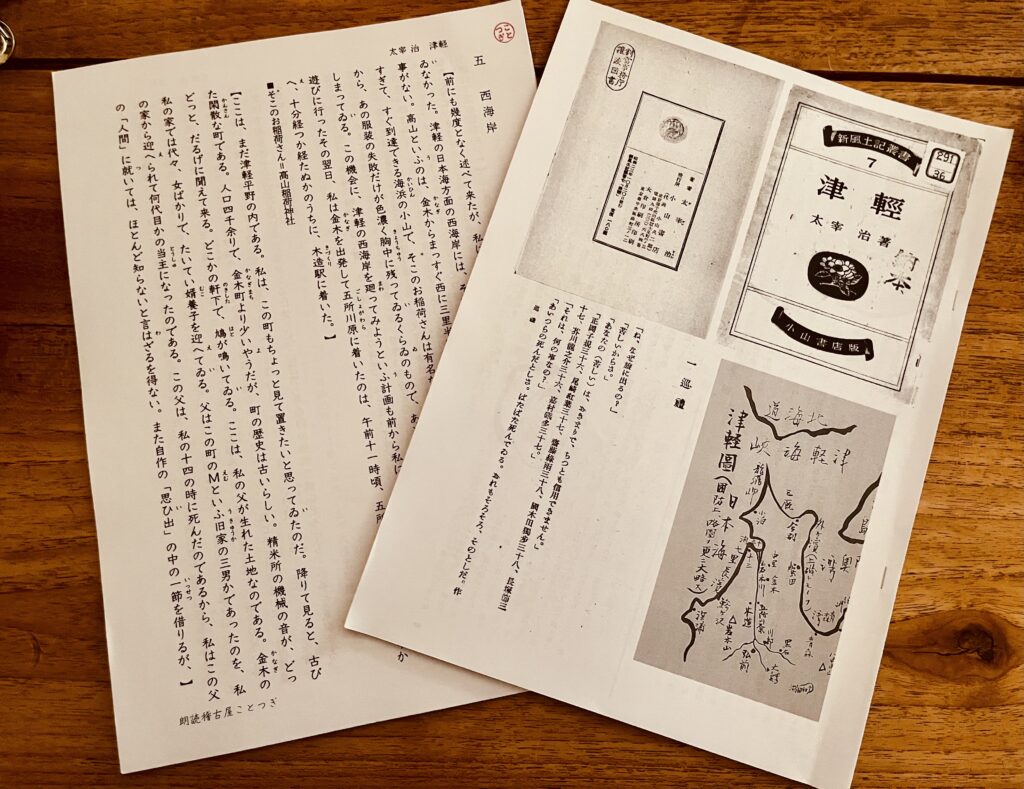 ことつぎ
太宰 治 津軽
五 西海岸
【前にも幾度となく述べて来たが、私
ゐなかった。津軽の日本海方面の西海岸には、そ
事がない。高山といふのは、金木からまっすぐ西に三里半
すぎて、すぐ到達できる海浜の小山で、そこのお稲荷さんは有名な
から、あの服装の失敗だけが色濃く胸中に残ってゐるくらゐのもので、あ
しまってゐる。この機会に、津軽の西海岸を廻ってみようといふ計画も前から私に
遊びに行ったその翌日、私は金木を出発して五所川原に着いたのは、午前十一時頃、五所
へ、十分経つか経たぬかのうちに、木造駅に着いた。】
■そこのお稲荷さん=高山稲荷神社
【ここは、まだ津軽平野の内である。私は、この町もちょっと見て置きたいと思ってゐたのだ。降りて見ると、古び
た閑散な町である。人口四千余りで、金木町より少いやうだが、町の歴史は古いらしい。精米所の機械の音が、どっ
どっと、だるげに聞えて来る。どこかの軒下で、鳩が鳴いてゐる。ここは、私の父が生れた土地なのである。金木の
私の家では代々、女ばかりで、たいてい婿養子を迎へてゐる。父はこの町のMといふ旧家の三男かであったのを、私
の家から迎へられて何代目かの当主になったのである。この父は、私の十四の時に死んだのであるから、私はこの父
の「人間」に就いては、ほとんど知らないと言はざるを得ない。また自作の「思ひ出」の中の一節を借りるが、】
朗読稽古屋ことつぎ
新風土記叢書
7
291
36
津輕
太宰治著
小山書店版
著者 太宰治
一 巡禮
「ね、なぜ旅に出るの?」
「苦しいからさ。」
「あなたの(苦しい)は、おきまりで、ちつとも信用できません。」
「正岡子規三十六、尾崎紅葉三十七、齋藤綠雨三十八、國木田獨歩三十八、長塚節三
十七、芥川龍之介三十六、嘉村礒多三十七。」
「それは、何の事なの?」
「あいつらの死んだとしさ。ばたばた死んでゐる。おれもそろそろ、そのとしだ。作
巡禮
北海道
津軽海峡
津軽圖
日本海
龍飛岬
小泊
三厩
今別
蟹田
金木
木造
岩木山
弘前
黒石
深浦